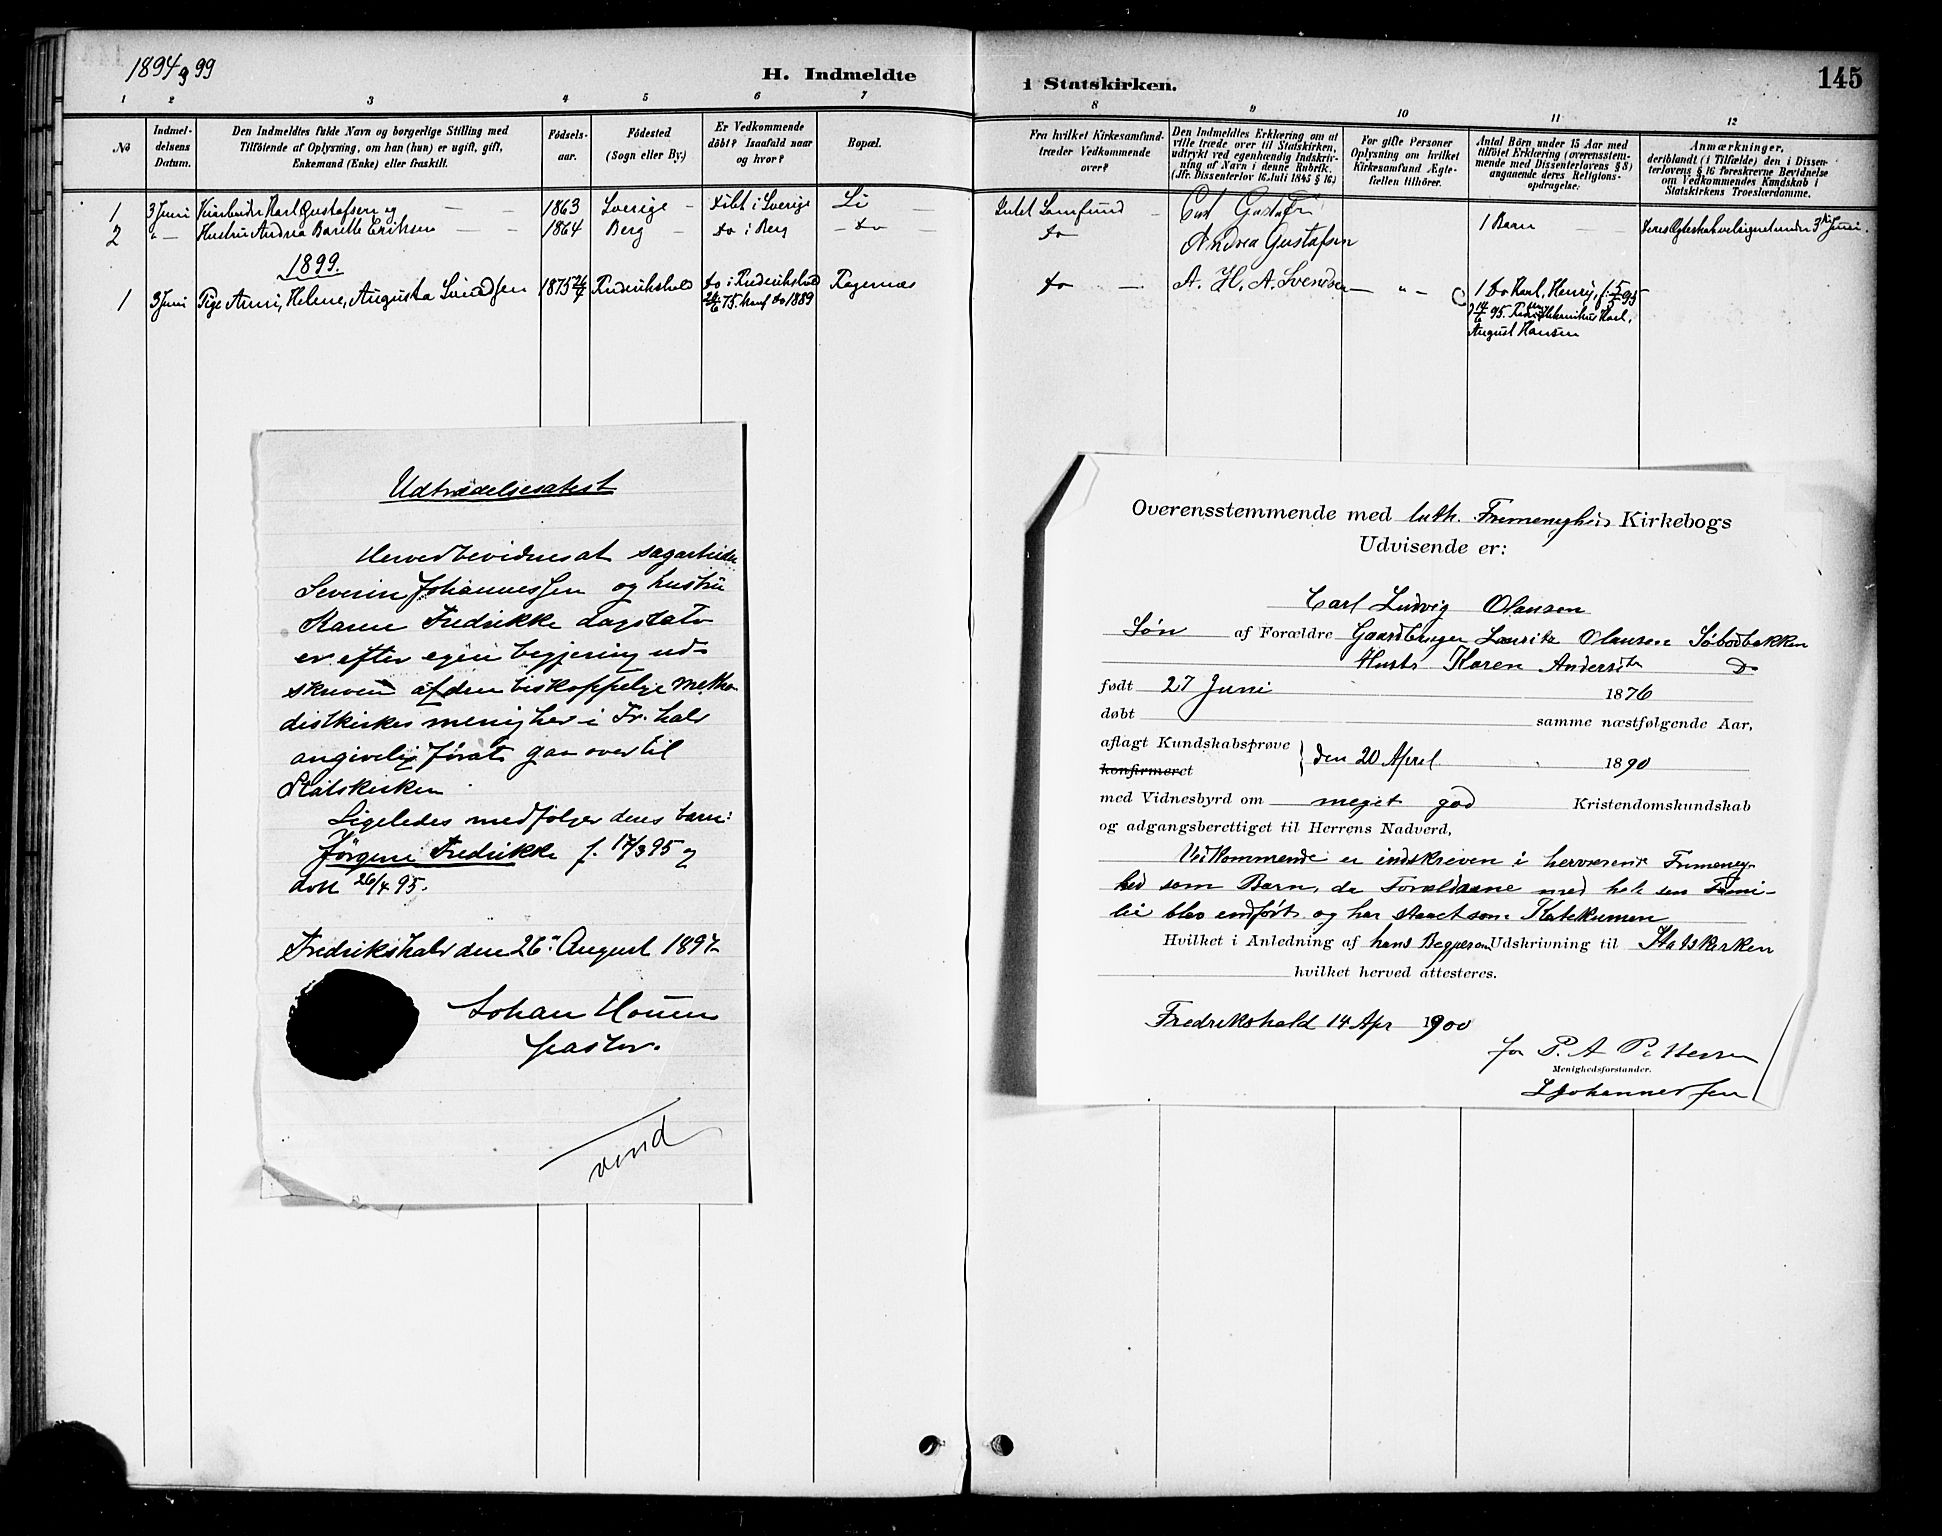 1894 og 99
H. Indmeldte i Statskirken.
145
1 2 3 4 5 6 7 8 9 10 11 12
No
Indmel-
delsens
Datum.
Den Indmeldtes fulde Navn og borgerlige Stilling med
Tilföiende af Oplysning, om han (hun) er ugift, gift,
Enkemand (Enke) eller fraskilt.
Födsels-
aar.
Födested
(Sogn eller By.)
Er Vedkommende
döbt? Isaafald naar
og hvor?
Bopæl.
Fra hvilket Kirkesamfund
træder Vedkommende
over?
Den Indmeldtes Erklæring om at
ville træde over til Statskirken,
udtrykt ved egenhændig Indskriv-
ning af Navn i denne Rubrik.
(Jfr. Dissenterlov 16 Juli 1845 § 16.)
For gifte Personer
Oplysning om hvilket
Kirkesamfund Ægte-
fællen tilhörer.
Antal Börn under 15 Aar med
tilföiet Erklæring (overensstem-
mende med Dissenterlovens § 8)
angaaende deres Religions-
opdragelse.
Anmærkninger,
deriblandt (i Tilfælde) den i Dissen-
terlovens § 16 foreskrevne Bevidnelse
om Vedkommendes Kundskab i
Statskirkens Troeslærdomme.
1 3 Juni Karl Gustafsen og 1863 Sverige döbt i Sverige Li Intet Samfund Carl Gustafs
2 " Hustru Andrea Eriksen 1864 Berg do i Berg do do Andrea Gustafsen 1 Barn
1899.
1 3 Juni Pige Anni, Helene, Augusta Svendsen 1875 Frederikshald do i Frederikshald do A. H. A. Svendsen " 1 do Karl, Henry, f. 5/5 95
75. konf do 1889
August Hansen
Udtrædelsesatest
Herved bevidnes at sagarbeider
Severin Johannessen og hustru
Karen Fredrikke
er efter egen begjering ud-
skreven af den biskoppelige Metho-
distkirkes menighed i Fr.hald
angivelig forat gaa over til
Statskirken
Ligeledes medfølger deres barn:
Jörgine Fredrikke f. 17/3 95 og
döbt 26/4 95.
Fredrikshald den 26. August 1897
Johan
pastor.
vend
Overensstemmende med luth. Frimenigheds Kirkebogs
Udvisende er:
Carl Ludvig Olausen
Søn af Forældre Gaardbruger Lauritz Olausen Söbödbakken
Hustr Karen Andersdtr Do
født 27 Juni 1876
døbt samme næstfølgende Aar,
aflagt Kundskabsprøve
konfirmeret
} den 20 April 1890
med Vidnesbyrd om meget god Kristendomskundskab
og adgangsberettiget til Herrens Nadverd,
Vedkommende er indskreven i herværende Frimenig-
hed som Barn, da Forældrene med hele sin Fami-
lie blev indført og har staaet som Katekumen
Hvilket i Anledning af hans Begjær om Udskrivning til Statskirken
hvilket herved attesteres.
Fredrikshald 14 Apr 1900
for P. A. Pettersen
Menighedsforstander.
Johannessen